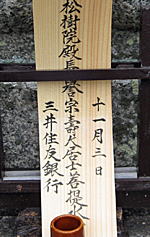 十一月三日
松樹院殿長誉宗壽大居士菩提水
三井住友銀行